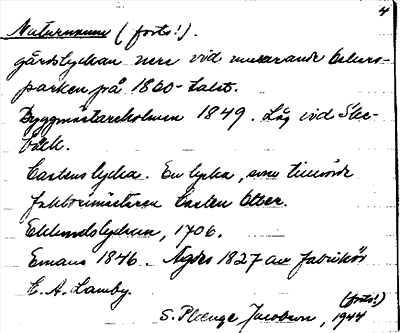 4
Naturnamn (forts!).
gårdslyckan nere vid nuvarande
parken på 1860-talet.
Byggmästareholmen 1849. Låg vid Ste-
bäck.
Castens lycka. En lycka, som tillhörde
faktorimästaren Casten Otter.
Eklundslyckan, 1706.
Emaus 1846. Ägdes 1827 av fabrikör
C. A. Lamby.
(forts!)
S. Plænge Jacobson, 1944